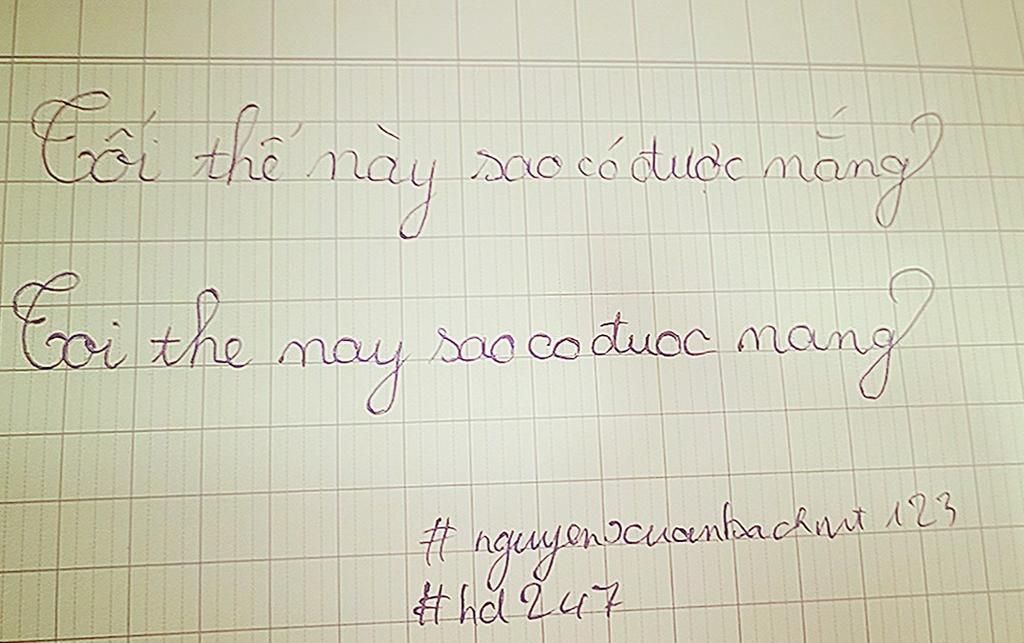 Tối thế này sao có được nắng
Toi the nay sao co đuoc nang
# nguyenxuanbachnvt 123
#hd247